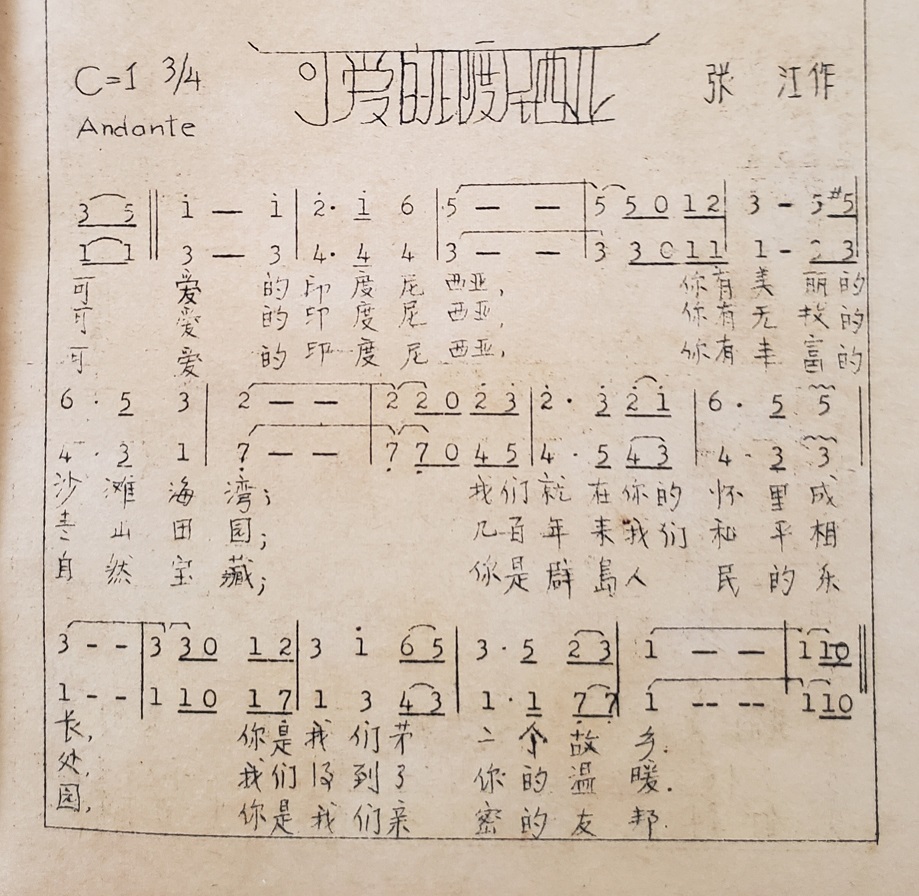 可爱的印度尼西亚
C=1 3/4
张 江作
Andante
3 5 ‖ i — i | 2· i 6 | 5 — — | 5 5 0 1 2 | 3 - 5 #5
1 1 3 — 3 4· 4 4 3 — — 3 3 0 1 1 1 - 3
可 爱 的 印 度 尼 西亚, 你有 美 丽 的
可 爱 的 印 度 尼 西亚, 你有 无 的
可 爱 的 印 度 尼 西亚, 你有 丰 富 的
6 · 5 3 | 2 — — | 2 2 0 2 3 | 2 · 3 2 i | 6 · 5 5 |
4 · 3 1 7 — — 7 7 0 4 5 4 · 5 4 3 4 · 3 3
沙 滩 海 湾; 我们 就 在 你 的 怀 里 成
山 田 园; 几百 年 来 我 们 和 平 相
自 然 宝 藏; 你是 群 島 人 民 的 乐
3 - - | 3 3 0 1 2 | 3 i 6 5 | 3 · 5 2 3 | 1 — — | 1 1 0 ‖
1 - - 1 1 0 1 7 1 3 4 3 1 · 1 7 7 1 -- -- 1 1 0
长, 你是 我 们 第 二 个 故 乡.
处, 我们 得 到 了 你 的 温 暖.
园, 你是 我 们 亲 密 的 友 邦.